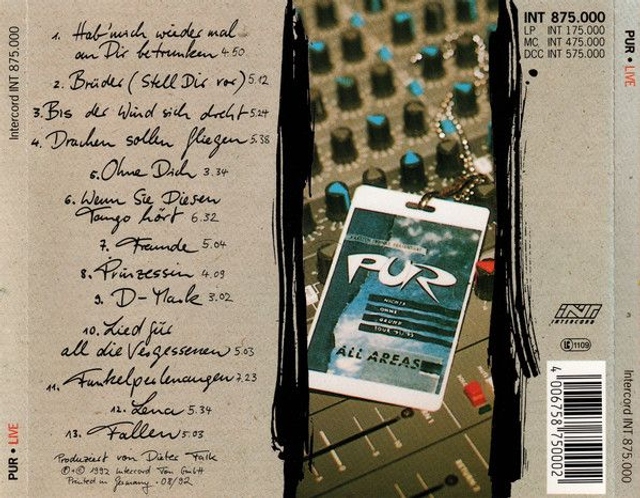 1. Hab' mich wieder mal
an Dir betrunken 4.50
2. Brüder (Stell Dir vor) 5.12
3. Bis der Wind sich dreht 5.24
4. Drachen sollen fliegen 5.38
5. Ohne Dich 3.34
6. Wenn Sie Diesen
Tango hört 6.32
7. Freunde 5.04
8. Prinzessin 4.09
9. D-Mark 3.02
10. Lied für
all die Vergessenen 5.03
11. Funkelperlenaugen 7.23
12. Lena 5.34
13. Fallen 5.03
Produziert von Dieter Falk
℗+© 1992 Intercord Ton GmbH
Printed in Germany · 08/92
Intercord INT 875.000
PUR • LIVE
PUR
NICHTS
OHNE
GRUND
TOUR '91/'92
ALL AREAS
INT 875.000
LP INT 175.000
MC INT 475.000
DCC INT 575.000
INT
INTERCORD
LC 1109
4 006758 750002
PUR • LIVE
Intercord INT 875.000